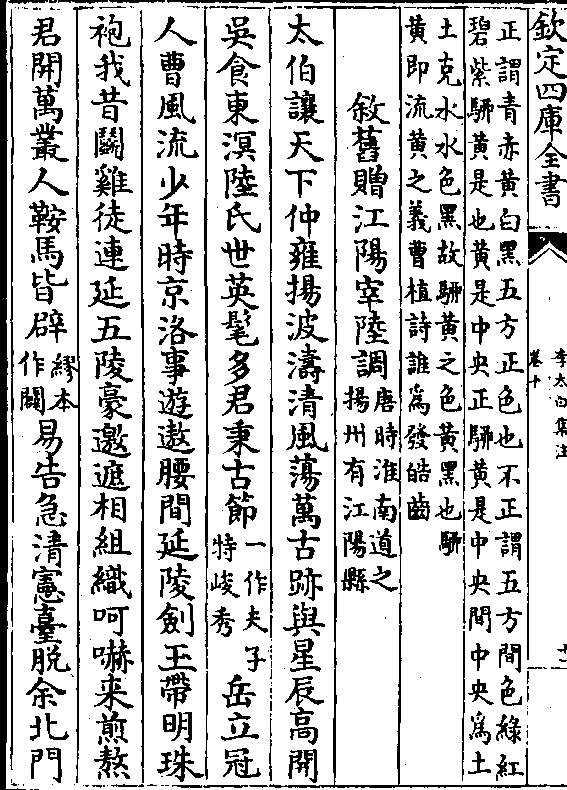 欽定四庫全書
李太白集注
卷十
正謂青赤黄白黑五方正色也不正謂五方間色綠紅
碧紫駵黄是也黄是中央正駵黄是中央間中央為土
土克水水色黑故駵黄之色黄黑也駵
黄即流黄之義曹植詩誰為發皓齒
敘舊贈江陽宰陸調唐時淮南道之
揚州有江陽縣
太伯讓天下仲雍揚波濤清風蕩萬古跡與星辰高開
吳食東溟陸氏世英髦多君秉古節一作夫子
特峻秀岳立冠
人曹風流少年時京洛事遊遨腰間延陵劍玉帶明珠
袍我昔鬭雞徒連延五陵豪邀遮相組織呵嚇来煎熬
君開萬叢人鞍馬皆辟繆本
作闢易告急清憲臺脱余北門